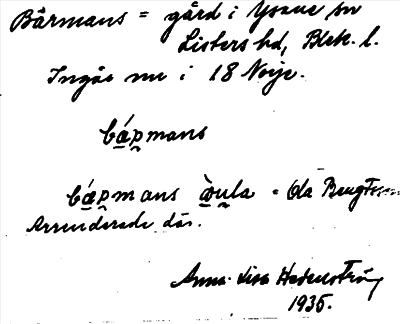 Bårmans = gård i Ysane sn
Listers hd, Blek. l.
Ingår nu i 18 Norje.
bá̱p̰mans
bá̱p̰mans ò̱ṵla = Ola Bengtsson
Arrenderade där.
Anna-Lisa Hedenström
1935.